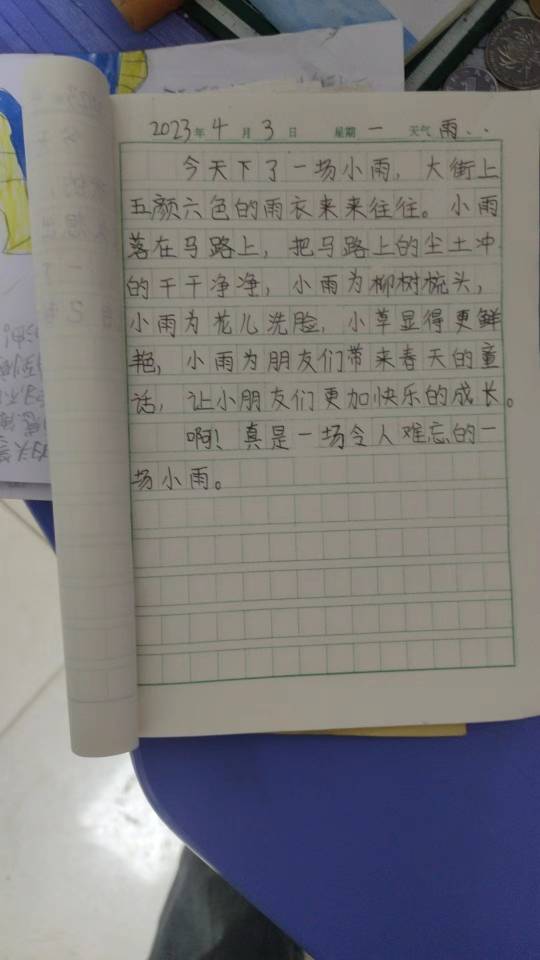 2023年 4月 3日 星期 一 天气 雨..
今天下了一场小雨，大街上
五颜六色的雨衣来来往往。小雨
落在马路上，把马路上的尘土冲
的干干净净，小雨为柳树梳头，
小雨为花儿洗脸，小草显得更鲜
艳，小雨为朋友们带来春天的童
话，让小朋友们更加快乐的成长。
啊！真是一场令人难忘的一
场小雨。